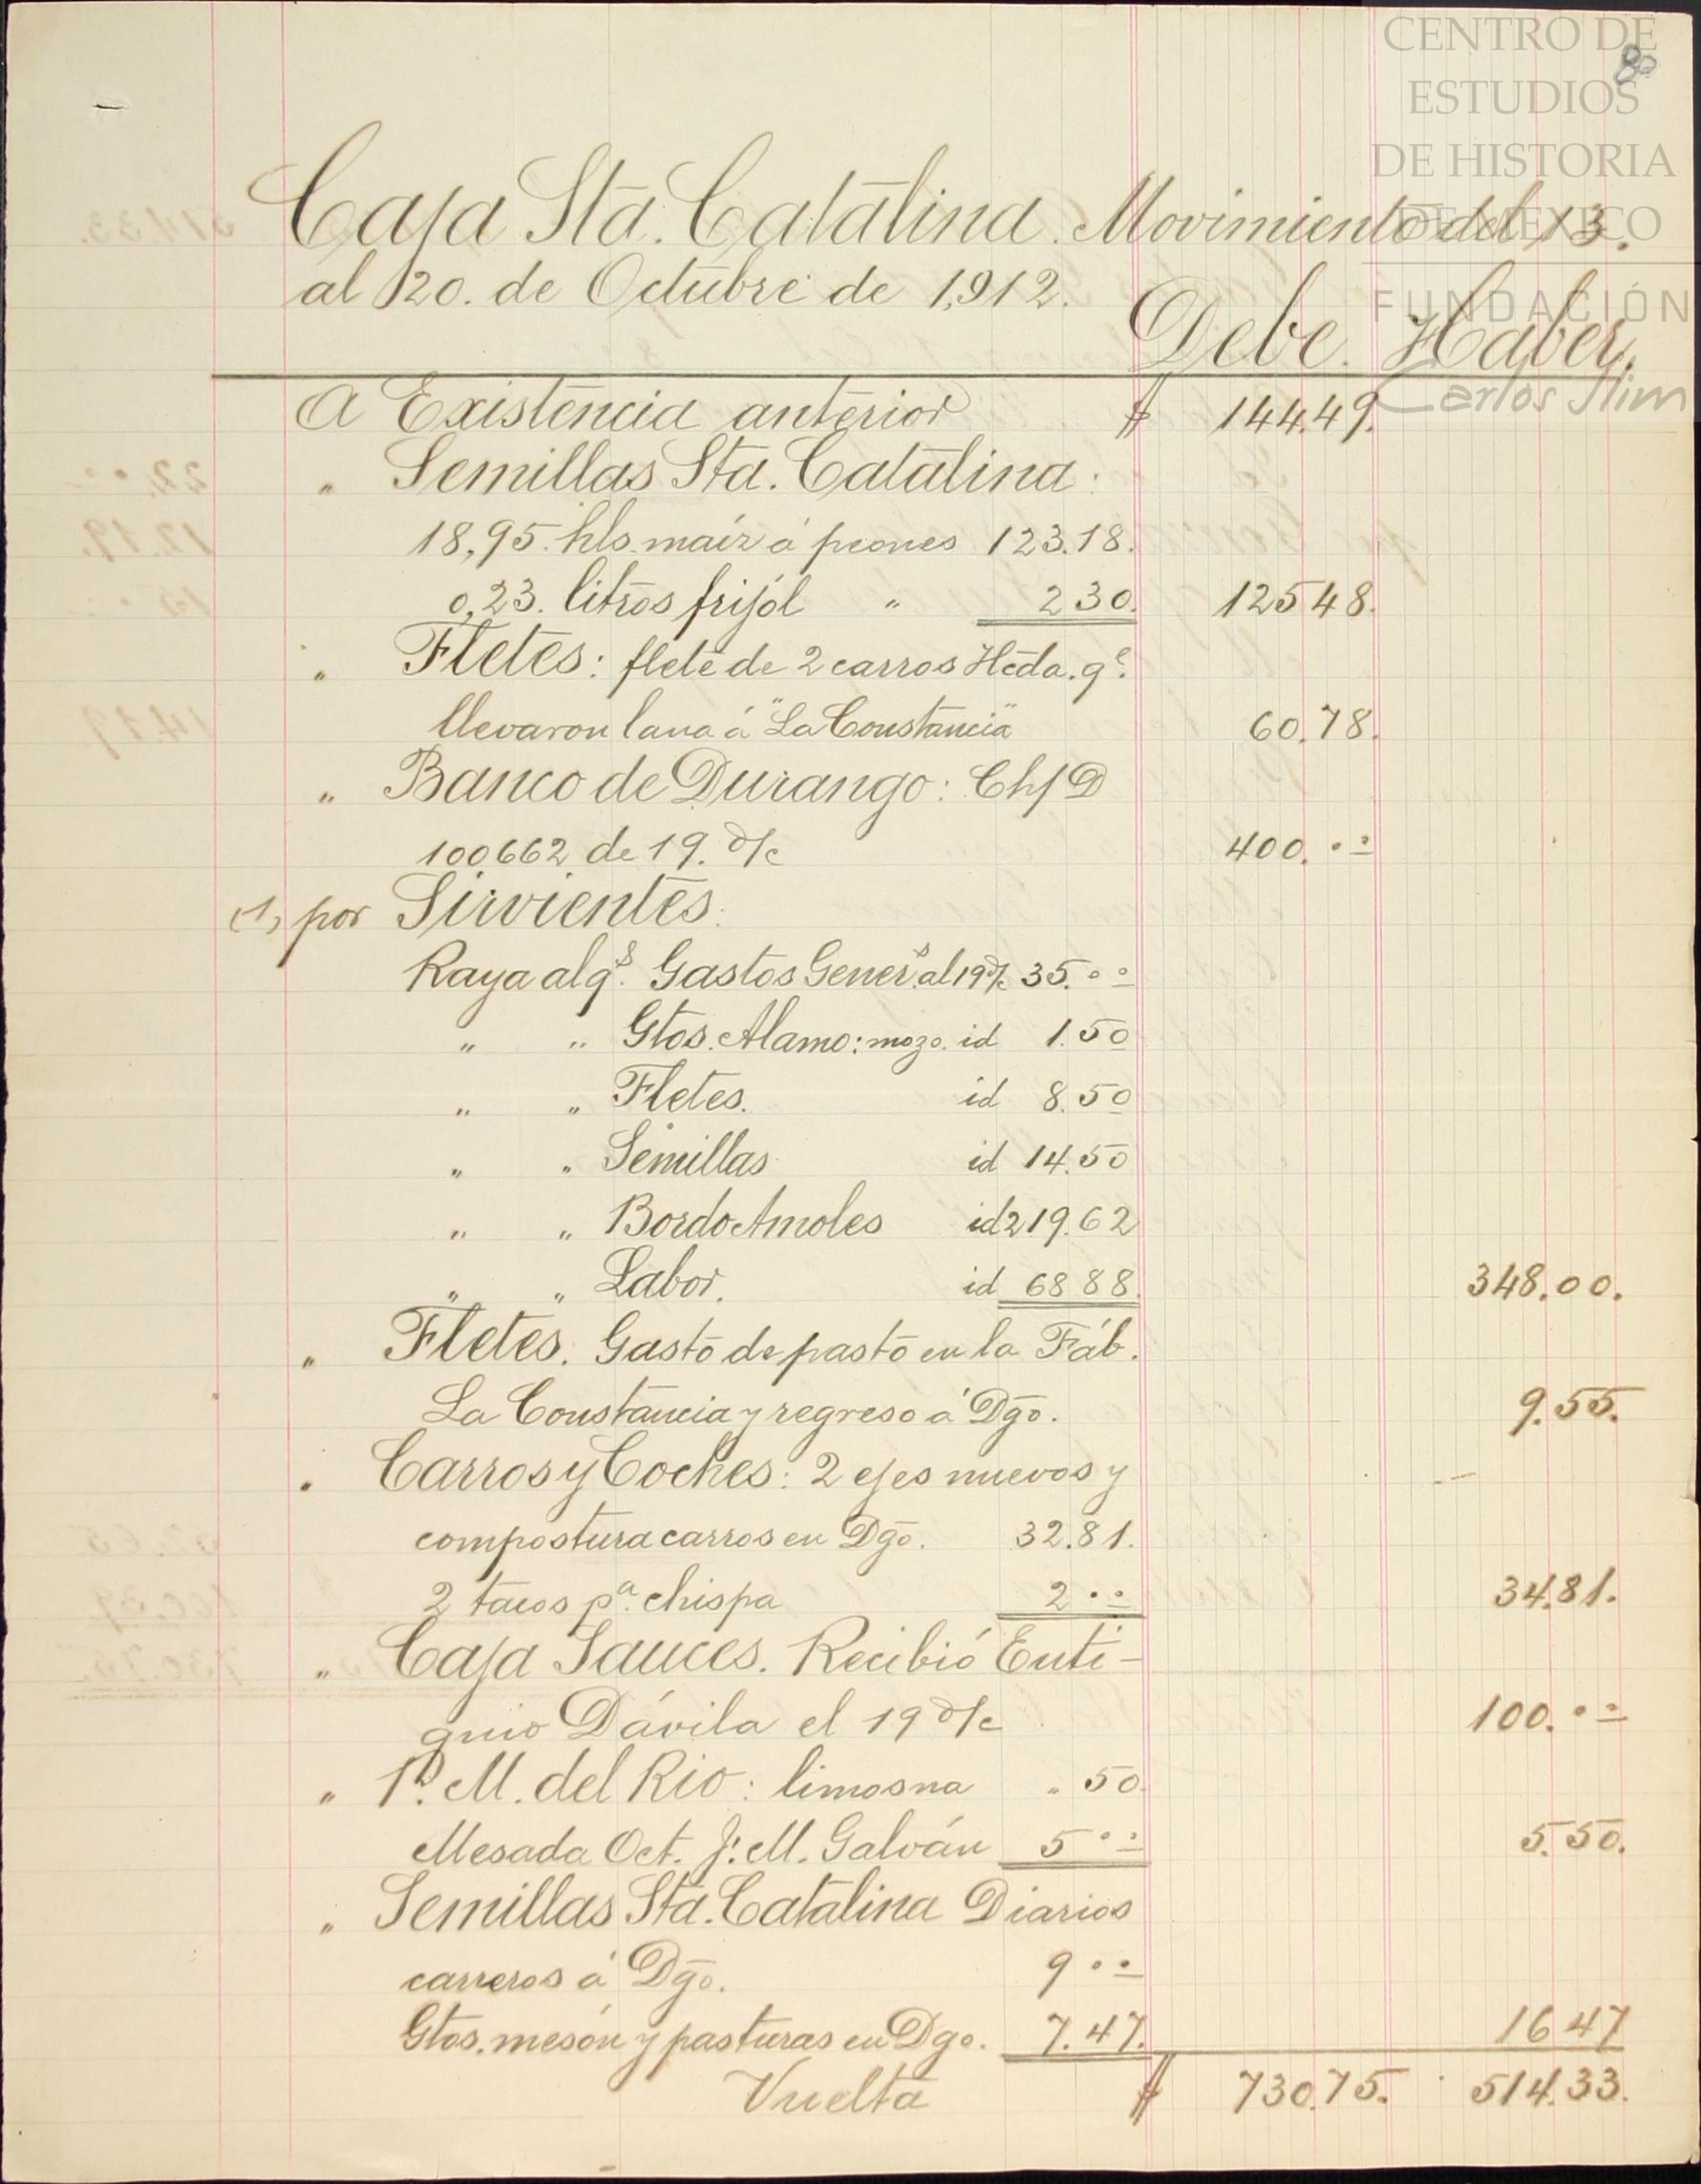 CENTRO DE
ESTUDIOS
DE HISTORIA
DE MÉXICO
FUNDACIÓN
Carlos Slim
80
Caja Sta. Catalina. Movimiento del 13.
al 20. de Octubre de 1,912.
Debe. Haber.
A Existencia anterior $ 144.49.
" Semillas Sta. Catalina:
18,95. hls. maíz á peones 123.18.
0,23. litros frijol " 2 30. 125 48.
" Fletes: flete de 2 carros Hcda. qe.
llevaron lana á "La Constancia" 60.78.
" Banco de Durango: Ch/ D
100662 de 19. d/c 400. ..
(1) por Sirvientes.
Raya alqs. Gastos Geners. al 19 d/c 35. ..
" " Gtos. Alamo: mozo. id 1.50
" " Fletes. id 8.50
" " Semillas id 14.50
" " Bordo Amoles id 219.62
" " Labor. id 68 88. 348.00.
" Fletes. Gasto de pasto en la Fáb.
La Constancia y regreso á Dgo. 9.55.
" Carros y Coches: 2 ejes nuevos y
compostura carros en Dgo. 32.81.
2 tacos pa. chispa 2 .. 34.81.
" Caja Sauces. Recibió Euti-
quio Dávila el 19 d/c 100. ..
" P. M. del Rio: limosna " 50.
Mesada Oct. J. M. Galván 5 .. 5.50.
" Semillas Sta. Catalina Diarios
carreros á Dgo. 9 ..
Gtos. mesón y pasturas en Dgo. 7.47. 16 47
Vuelta $ 730.75. 514.33.